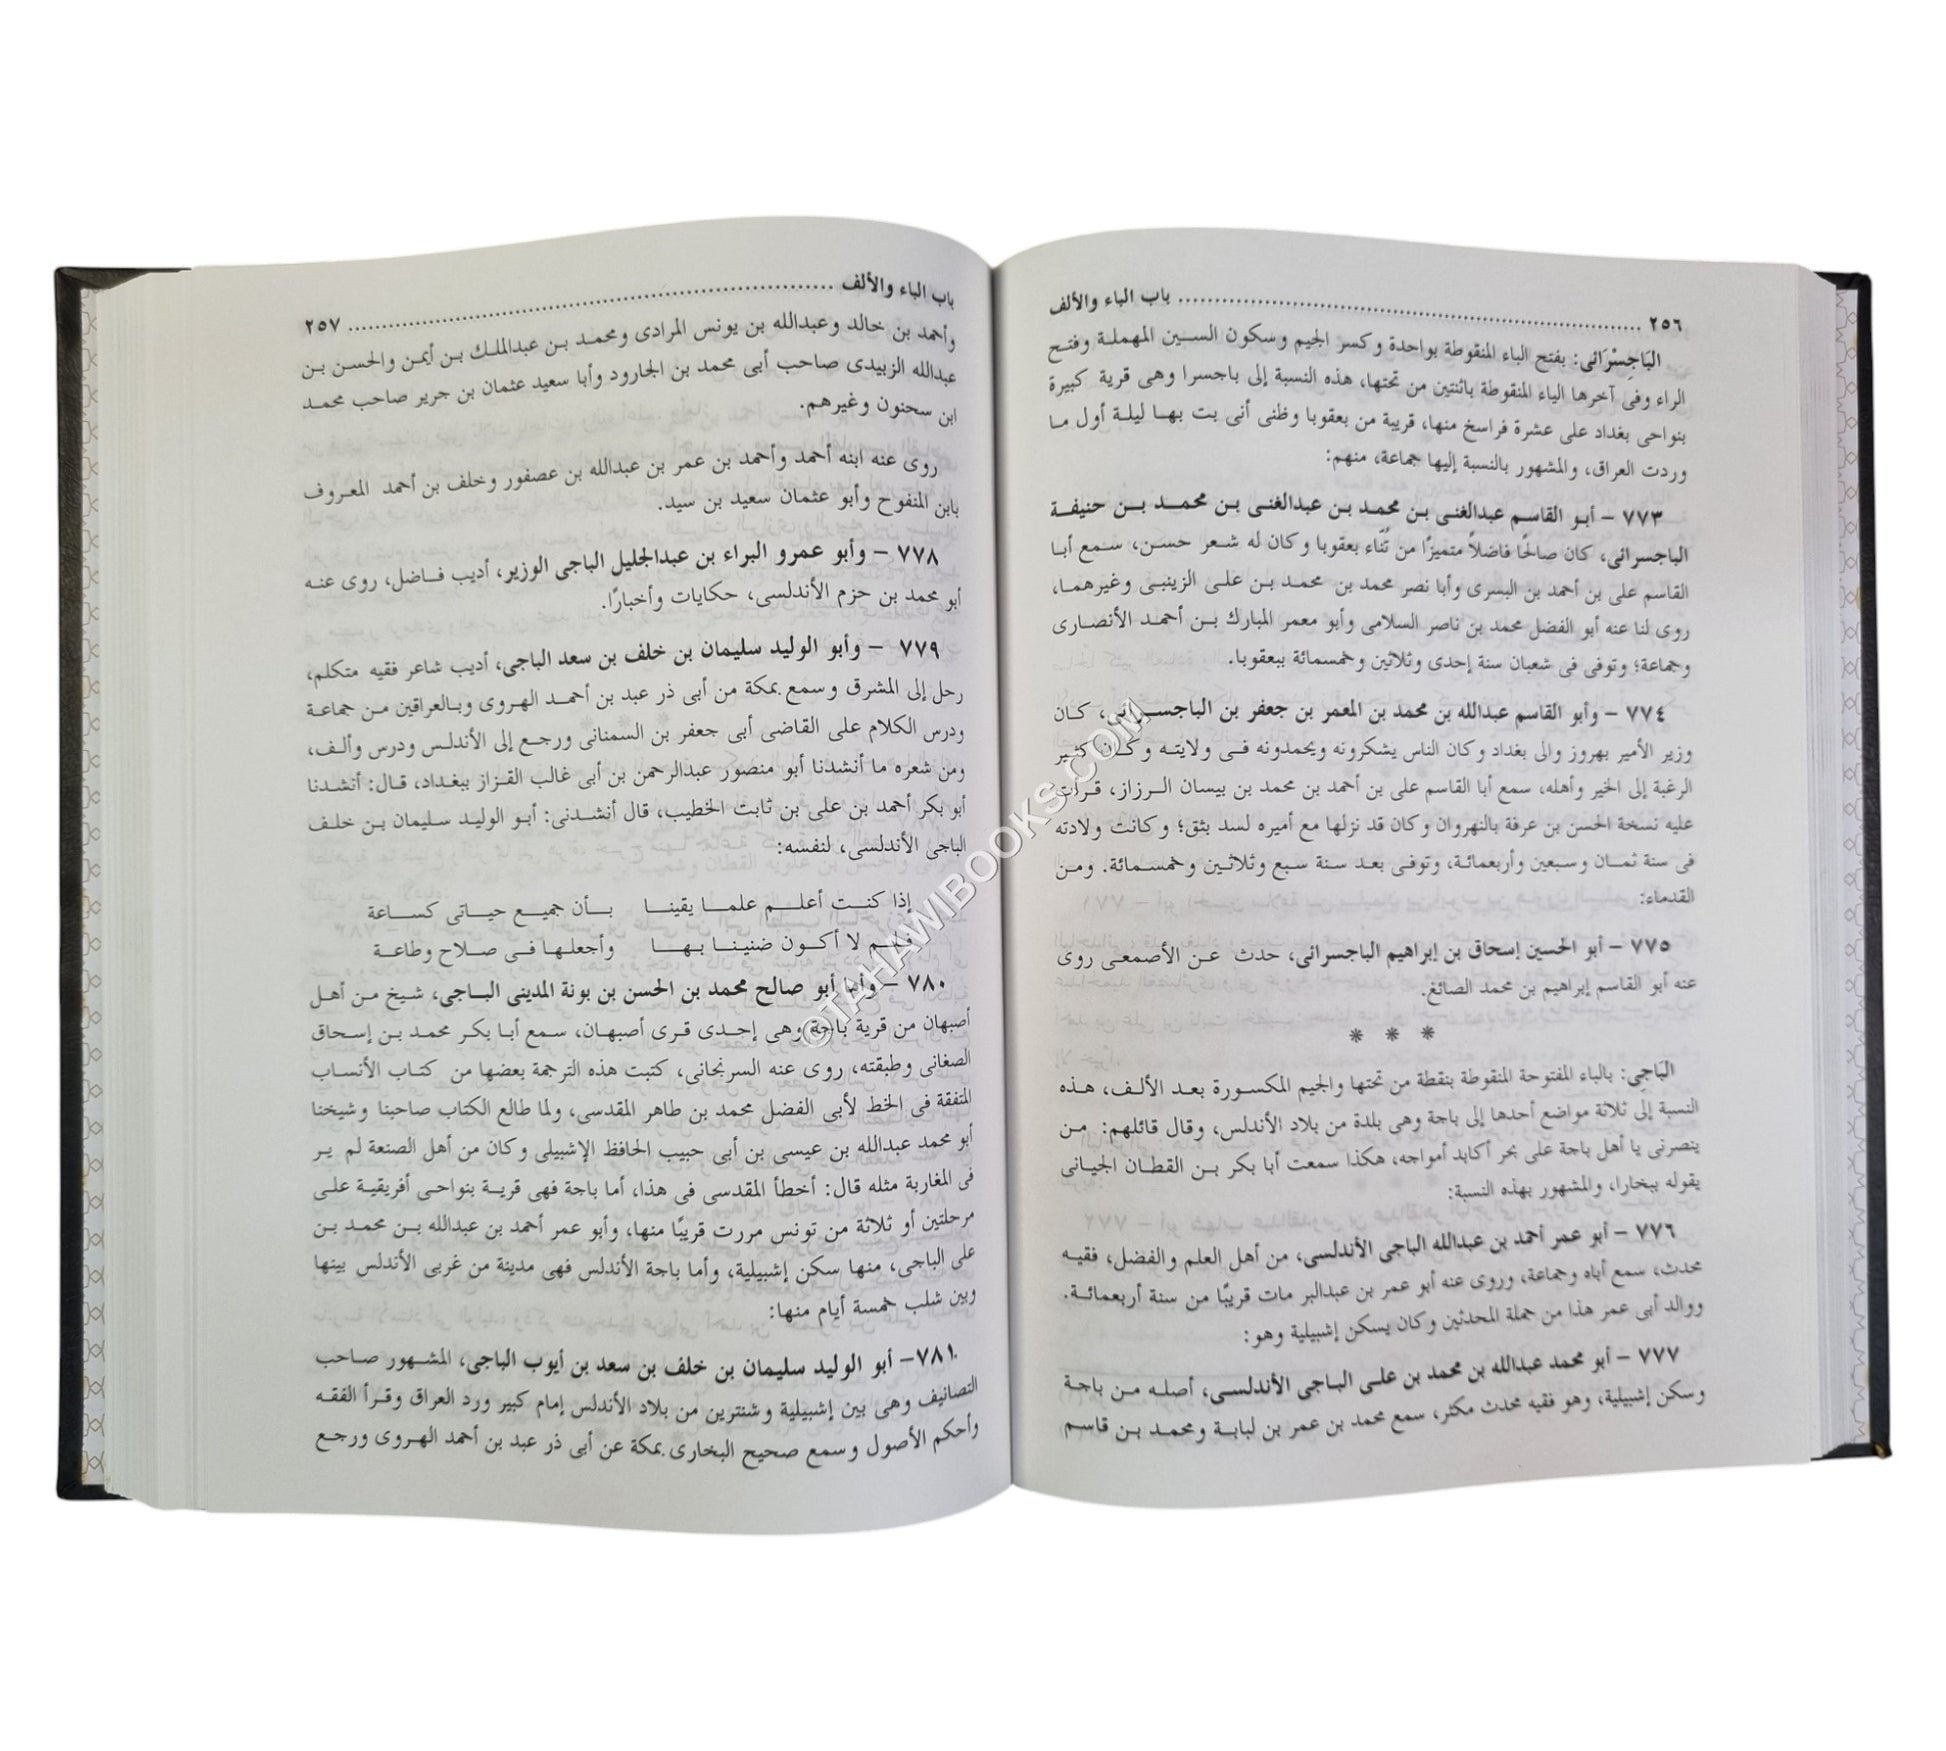 ٢٥٦ ........ باب الباء والألف
البَاجِسْرَائى: بفتح الباء المنقوطة بواحدة وكسر الجيم وسكون السين المهملة وفتح
الراء وفى آخرها الياء المنقوطة باثنتين من تحتها، هذه النسبة إلى باجسرا وهى قرية كبيرة
بنواحى بغداد على عشرة فراسخ منها، قريبة من بعقوبا وظنى أنى بت بها ليلة أول ما
وردت العراق، والمشهور بالنسبة إليها جماعة، منهم:
٧٧٣ - أبو القاسم عبدالغنى بن محمد بن عبدالغنى بن محمد بن حنيفة
الباجسرائى، كان صالحًا فاضلاً متميزًا من تُنّاء بعقوبا وكان له شعر حسن، سمع أبا
القاسم على بن أحمد بن البسرى وأبا نصر محمد بن محمد بن على الزينبى وغيرهما،
روى لنا عنه أبو الفضل محمد بن ناصر السلامى وأبو معمر المبارك بن أحمد الأنصارى
وجماعة؛ وتوفى فى شعبان سنة إحدى وثلاثين وخمسمائة ببعقوبا.
٧٧٤ - وأبو القاسم عبدالله بن محمد بن المعمر بن جعفر بن الباجسرائى، كان
وزير الأمير بهروز والى بغداد وكان الناس يشكرونه ويحمدونه فى ولايته وكان كثير
الرغبة إلى الخير وأهله، سمع أبا القاسم على بن أحمد بن محمد بن بيسان الرزاز، قرأت
عليه نسخة الحسن بن عرفة بالنهروان وكان قد نزلها مع أميره لسد بثق؛ وكانت ولادته
فى سنة ثمان وسبعين وأربعمائة، وتوفى بعد سنة سبع وثلاثين وخمسمائة. ومن
القدماء:
٧٧٥ - أبو الحسين إسحاق بن إبراهيم الباجسرائى، حدث عن الأصمعى روى
عنه أبو القاسم إبراهيم بن محمد الصائغ.
* * *
البَاجِى: بالباء المفتوحة المنقوطة بنقطة من تحتها والجيم المكسورة بعد الألف، هذه
النسبة إلى ثلاثة مواضع أحدها إلى باجة وهى بلدة من بلاد الأندلس، وقال قائلهم: من
ينصرنى يا أهل باجة على بحر أكابد أمواجه، هكذا سمعت أبا بكر بن القطان الجيانى
يقوله ببخارا، والمشهور بهذه النسبة:
٧٧٦ - أبو عمر أحمد بن عبدالله الباجى الأندلسى، من أهل العلم والفضل، فقيه
محدث، سمع أباه وجماعة، وروى عنه أبو عمر بن عبدالبر مات قريبًا من سنة أربعمائة.
ووالد أبى عمر هذا من جملة المحدثين وكان يسكن إشبيلية وهو:
٧٧٧ - أبو محمد عبدالله بن محمد بن على الباجى الأندلسى، أصله من باجة
وسكن إشبيلية، وهو فقيه محدث مكثر، سمع محمد بن عمر بن لبابة ومحمد بن قاسم
باب الباء والألف ........ ٢٥٧
وأحمد بن خالد وعبدالله بن يونس المرادى ومحمد بن عبدالملك بن أيمن والحسن بن
عبدالله الزبيدى صاحب أبى محمد بن الجارود وأبا سعيد عثمان بن جرير صاحب محمد
ابن سحنون وغيرهم.
روى عنه ابنه أحمد وأحمد بن عمر بن عبدالله بن عصفور وخلف بن أحمد المعروف
بابن المنفوح وأبو عثمان سعيد بن سيد.
٧٧٨ - وأبو عمرو البراء بن عبدالجليل الباجى الوزير، أديب فاضل، روى عنه
أبو محمد بن حزم الأندلسى، حكايات وأخبارًا.
٧٧٩ - وأبو الوليد سليمان بن خلف بن سعد الباجى، أديب شاعر فقيه متكلم،
رحل إلى المشرق وسمع بمكة من أبى ذر عبد بن أحمد الهروى وبالعراقين من جماعة
ودرس الكلام على القاضى أبى جعفر بن السمنانى ورجع إلى الأندلس ودرس وألف،
ومن شعره ما أنشدنا أبو منصور عبدالرحمن بن أبى غالب القزاز ببغداد، قال: أنشدنا
أبو بكر أحمد بن على بن ثابت الخطيب، قال أنشدنى: أبو الوليد سليمان بن خلف
الباجى الأندلسى، لنفسه:
إذا كنت أعلم علما يقينا بأن جميع حياتى كساعة
فلم لا أكون ضنينا بها وأجعلها فى صلاح وطاعة
٧٨٠ - وأما أبو صالح محمد بن الحسن بن بونة المدينى الباجى، شيخ من أهل
أصبهان من قرية باجة وهى إحدى قرى أصبهان، سمع أبا بكر محمد بن إسحاق
الصغانى وطبقته، روى عنه السرنجانى، كتبت هذه الترجمة بعضها من كتاب الأنساب
المتفقة فى الخط لأبى الفضل محمد بن طاهر المقدسى، ولما طالع الكتاب صاحبنا وشيخنا
أبو محمد عبدالله بن عيسى بن أبى حبيب الحافظ الإشبيلى وكان من أهل الصنعة لم ير
فى المغاربة مثله قال: أخطأ المقدسى فى هذا، أما باجة فهى قرية بنواحى أفريقية على
مرحلتين أو ثلاثة من تونس مررت قريبًا منها، وأبو عمر أحمد بن عبدالله بن محمد بن
على الباجى، منها سكن إشبيلية، وأما باجة الأندلس فهى مدينة من غربى الأندلس بينها
وبين شلب خمسة أيام منها:
٧٨١- أبو الوليد سليمان بن خلف بن سعد بن أيوب الباجى، المشهور صاحب
التصانيف وهى بين إشبيلية وشنترين من بلاد الأندلس إمام كبير ورد العراق وقرأ الفقه
وأحكم الأصول وسمع صحيح البخارى بمكة عن أبى ذر عبد بن أحمد الهروى ورجع
©TAHAWIBOOKS.COM